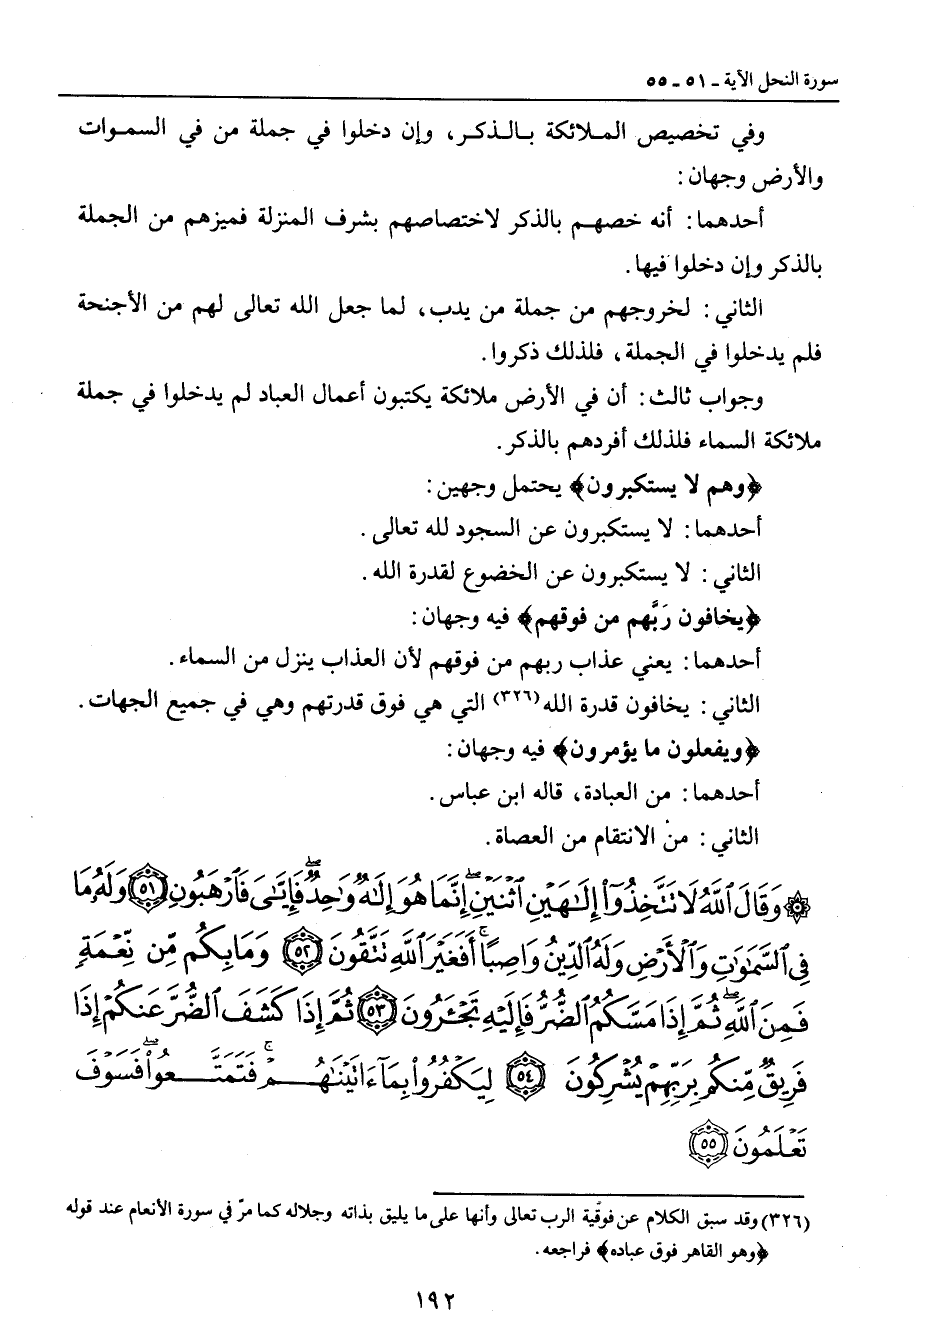 سورة النحل الآية ـ ٥١ ـ ٥٥
وفي تخصيص الملائكة بالذكر، وإن دخلوا في جملة من في السموات
والأرض وجهان:
أحدهما: أنه خصهم بالذكر لاختصاصهم بشرف المنزلة فميزهم من الجملة
بالذكر وإن دخلوا فيها.
الثاني: لخروجهم من جملة من يدب، لما جعل الله تعالى لهم من الأجنحة
فلم يدخلوا في الجملة، فلذلك ذكروا.
وجواب ثالث: أن في الأرض ملائكة يكتبون أعمال العباد لم يدخلوا في جملة
ملائكة السماء فلذلك أفردهم بالذكر.
﴿وهم لا يستكبرون﴾ يحتمل وجهين:
أحدهما: لا يستكبرون عن السجود لله تعالى.
الثاني: لا يستكبرون عن الخضوع لقدرة الله.
﴿يخافون رَبَّهم من فوقهم﴾ فيه وجهان:
أحدهما: يعني عذاب ربهم من فوقهم لأن العذاب ينزل من السماء.
الثاني: يخافون قدرة الله(٣٢٦) التي هي فوق قدرتهم وهي في جميع الجهات.
﴿ويفعلون ما يؤمرون﴾ فيه وجهان:
أحدهما: من العبادة، قاله ابن عباس.
الثاني: من الانتقام من العصاة.
۞ وَقَالَ ٱللَّهُ لَا تَتَّخِذُوٓا۟ إِلَٰهَيْنِ ٱثْنَيْنِ ۖ إِنَّمَا هُوَ إِلَٰهٌ وَٰحِدٌ ۖ فَإِيَّٰىَ فَٱرْهَبُونِ ٥١ وَلَهُۥ مَا
فِى ٱلسَّمَٰوَٰتِ وَٱلْأَرْضِ وَلَهُ ٱلدِّينُ وَاصِبًا ۚ أَفَغَيْرَ ٱللَّهِ تَتَّقُونَ ٥٢ وَمَا بِكُم مِّن نِّعْمَةٍ
فَمِنَ ٱللَّهِ ۖ ثُمَّ إِذَا مَسَّكُمُ ٱلضُّرُّ فَإِلَيْهِ تَجْـَٔرُونَ ٥٣ ثُمَّ إِذَا كَشَفَ ٱلضُّرَّ عَنكُمْ إِذَا
فَرِيقٌ مِّنكُم بِرَبِّهِمْ يُشْرِكُونَ ٥٤ لِيَكْفُرُوا۟ بِمَآ ءَاتَيْنَٰهُمْ ۚ فَتَمَتَّعُوا۟ ۖ فَسَوْفَ
تَعْلَمُونَ ٥٥
(٣٢٦) وقد سبق الكلام عن فوقية الرب تعالى وأنها على ما يليق بذاته وجلاله كما مرّ في سورة الأنعام عند قوله
﴿وهو القاهر فوق عباده﴾ فراجعه.
١٩٢